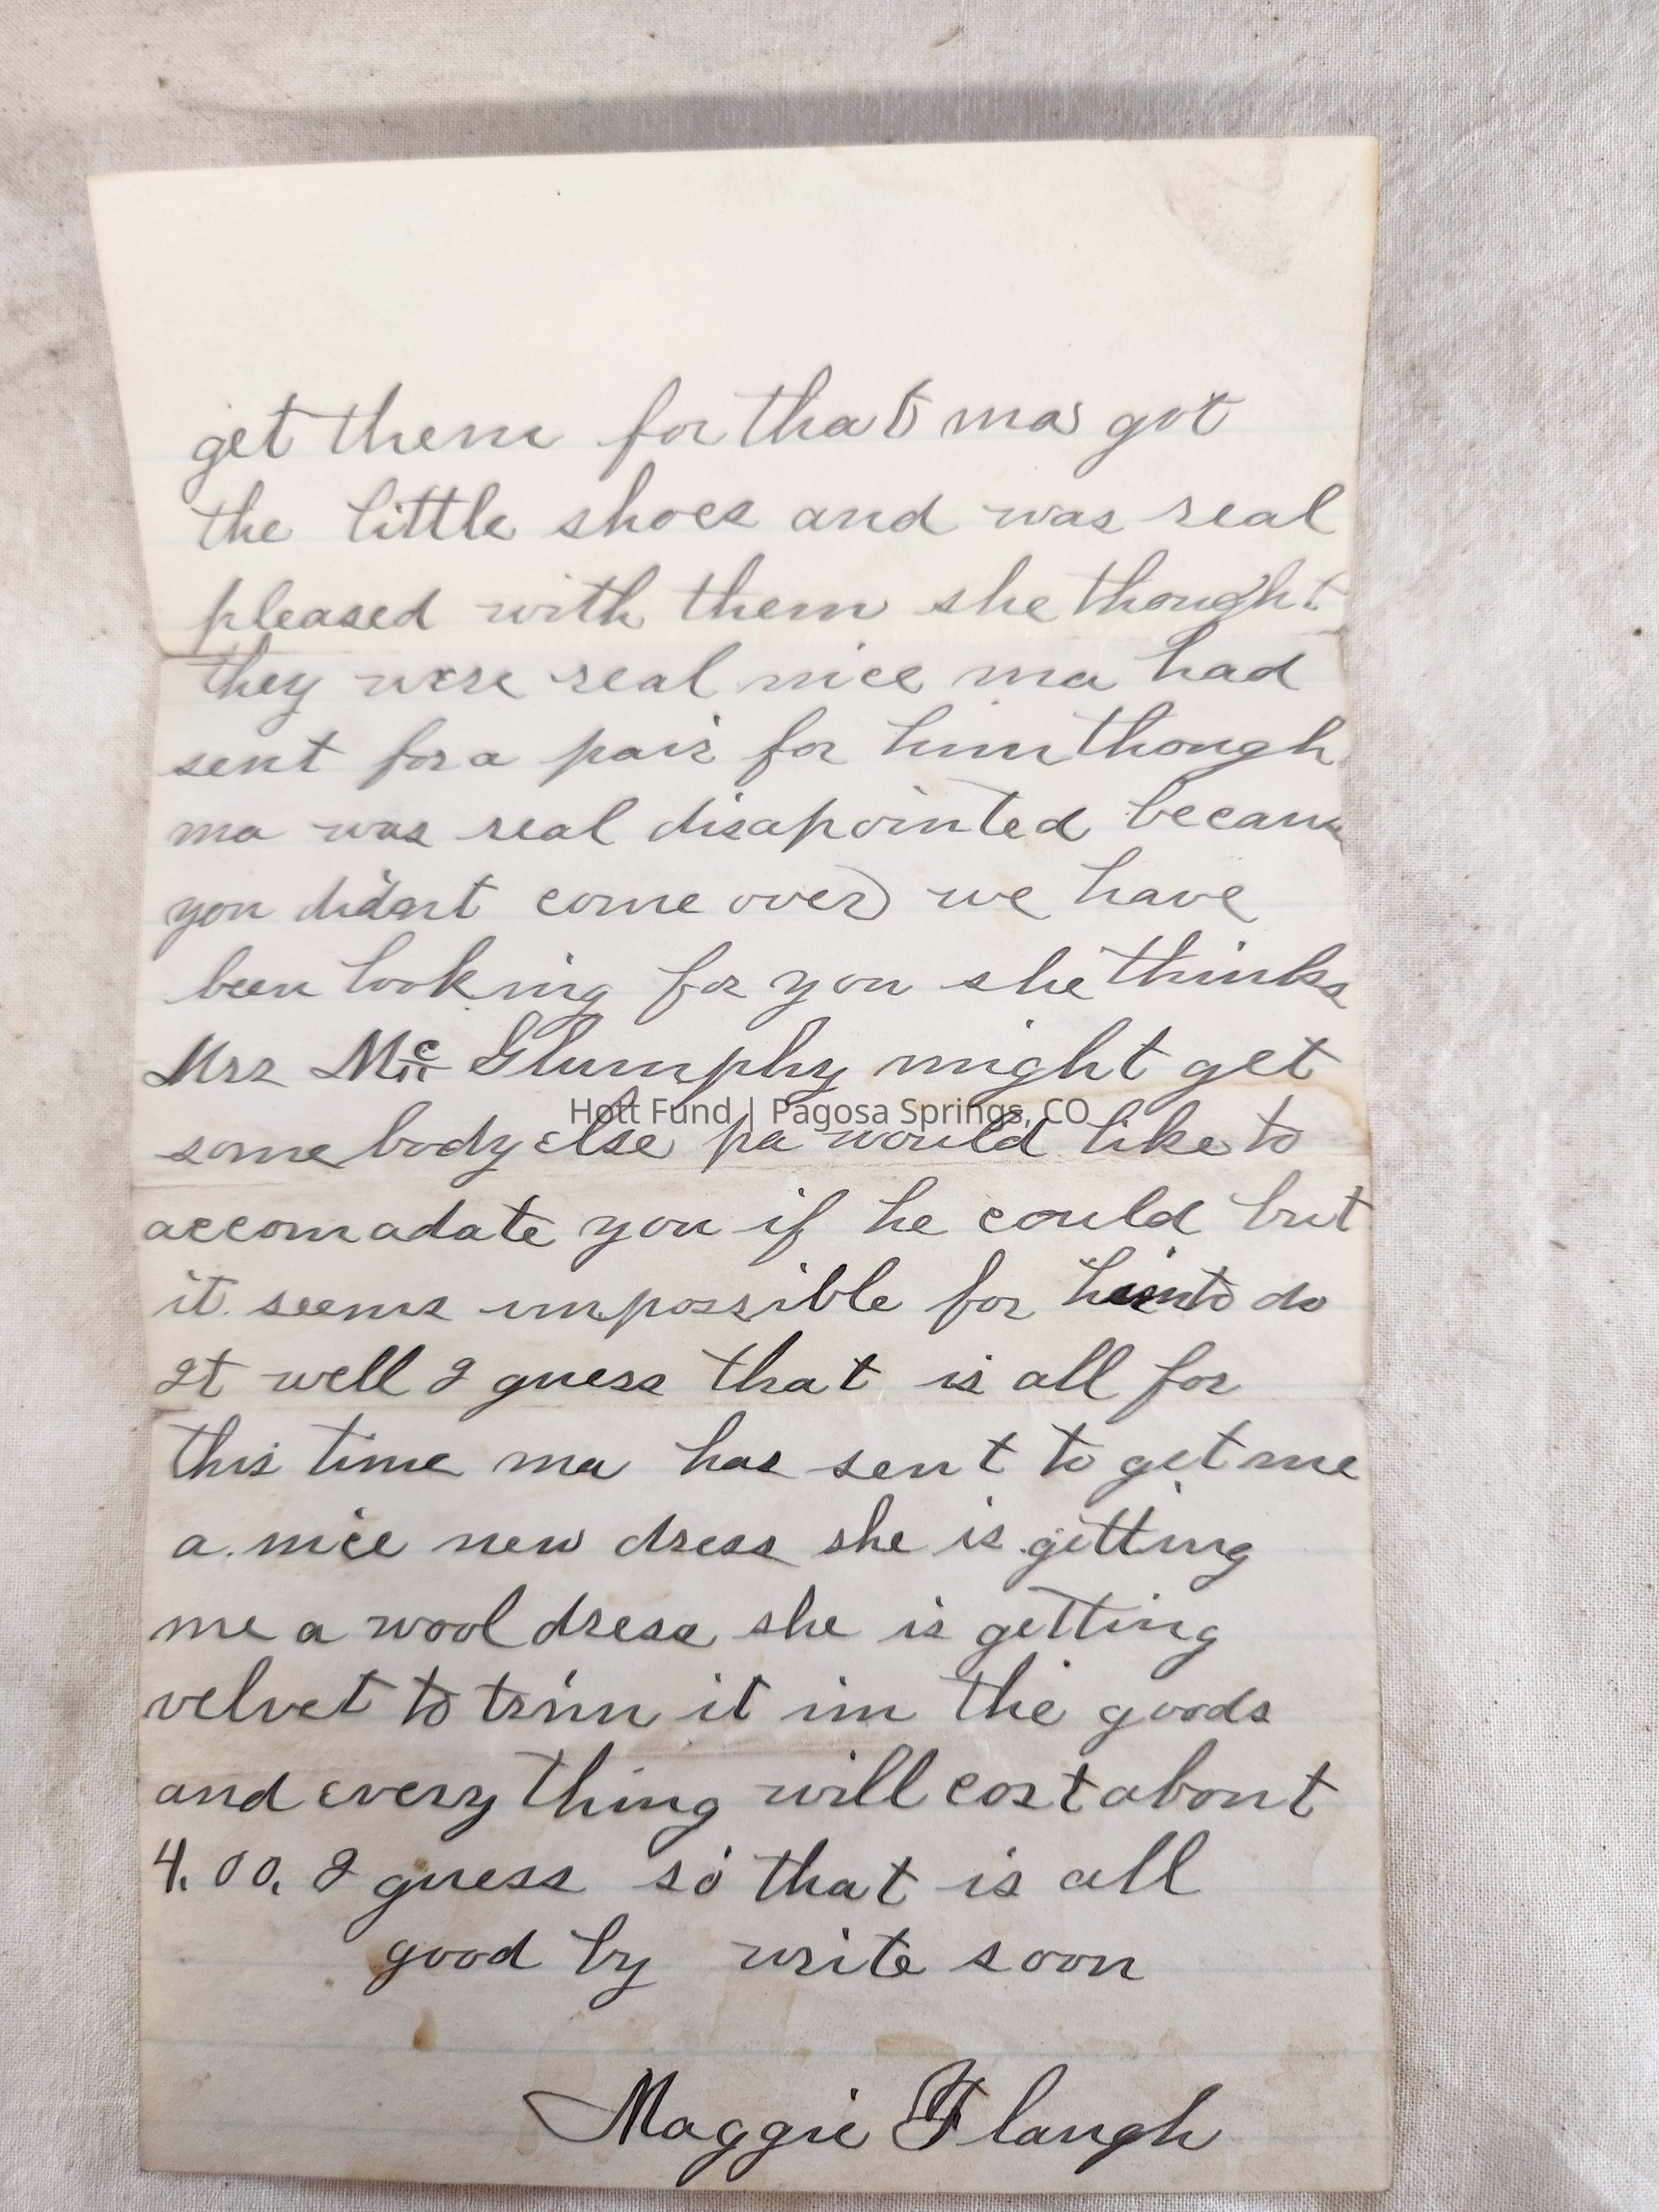 get them for that ma got
the little shoes and was real
pleased with them she thought
they were real nice ma had
sent for a pair for him though
ma was real disapointed becaus
you didant come over we have
been looking for you she thinks
Mrs Mc Glumphy might get
Hott Fund | Pagosa Springs, CO
some body else pa would like to
accomadate you if he could but
it seems impossible for him to do
It well I guess that is all for
this time ma has sent to get me
a nice new dress she is getting
me a wool dress she is getting
velvet to trim it im the goods
and every thing will cost about
4.00. I guess so that is all
good by write soon
Maggie Flaugh